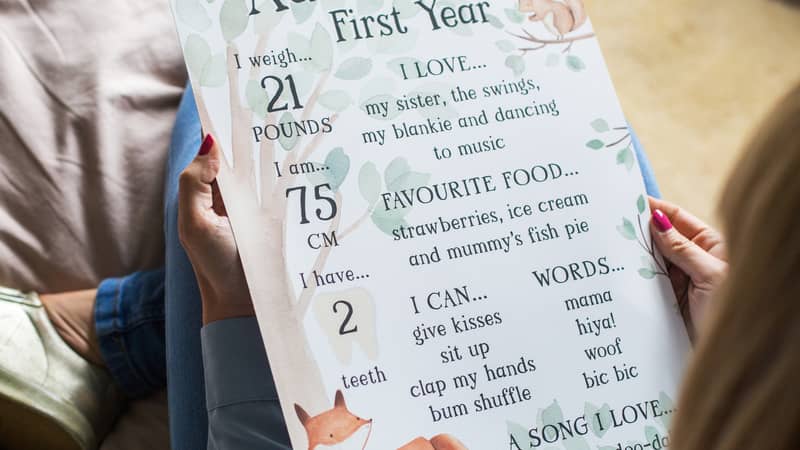 First Year
I weigh...
21
POUNDS
I am...
75
CM
I have...
2
teeth
I LOVE...
my sister, the swings,
my blankie and dancing
to music
FAVOURITE FOOD...
strawberries, ice cream
and mummy's fish pie
I CAN...
give kisses
sit up
clap my hands
bum shuffle
WORDS...
mama
hiya!
woof
bic bic
A SONG I LOVE...